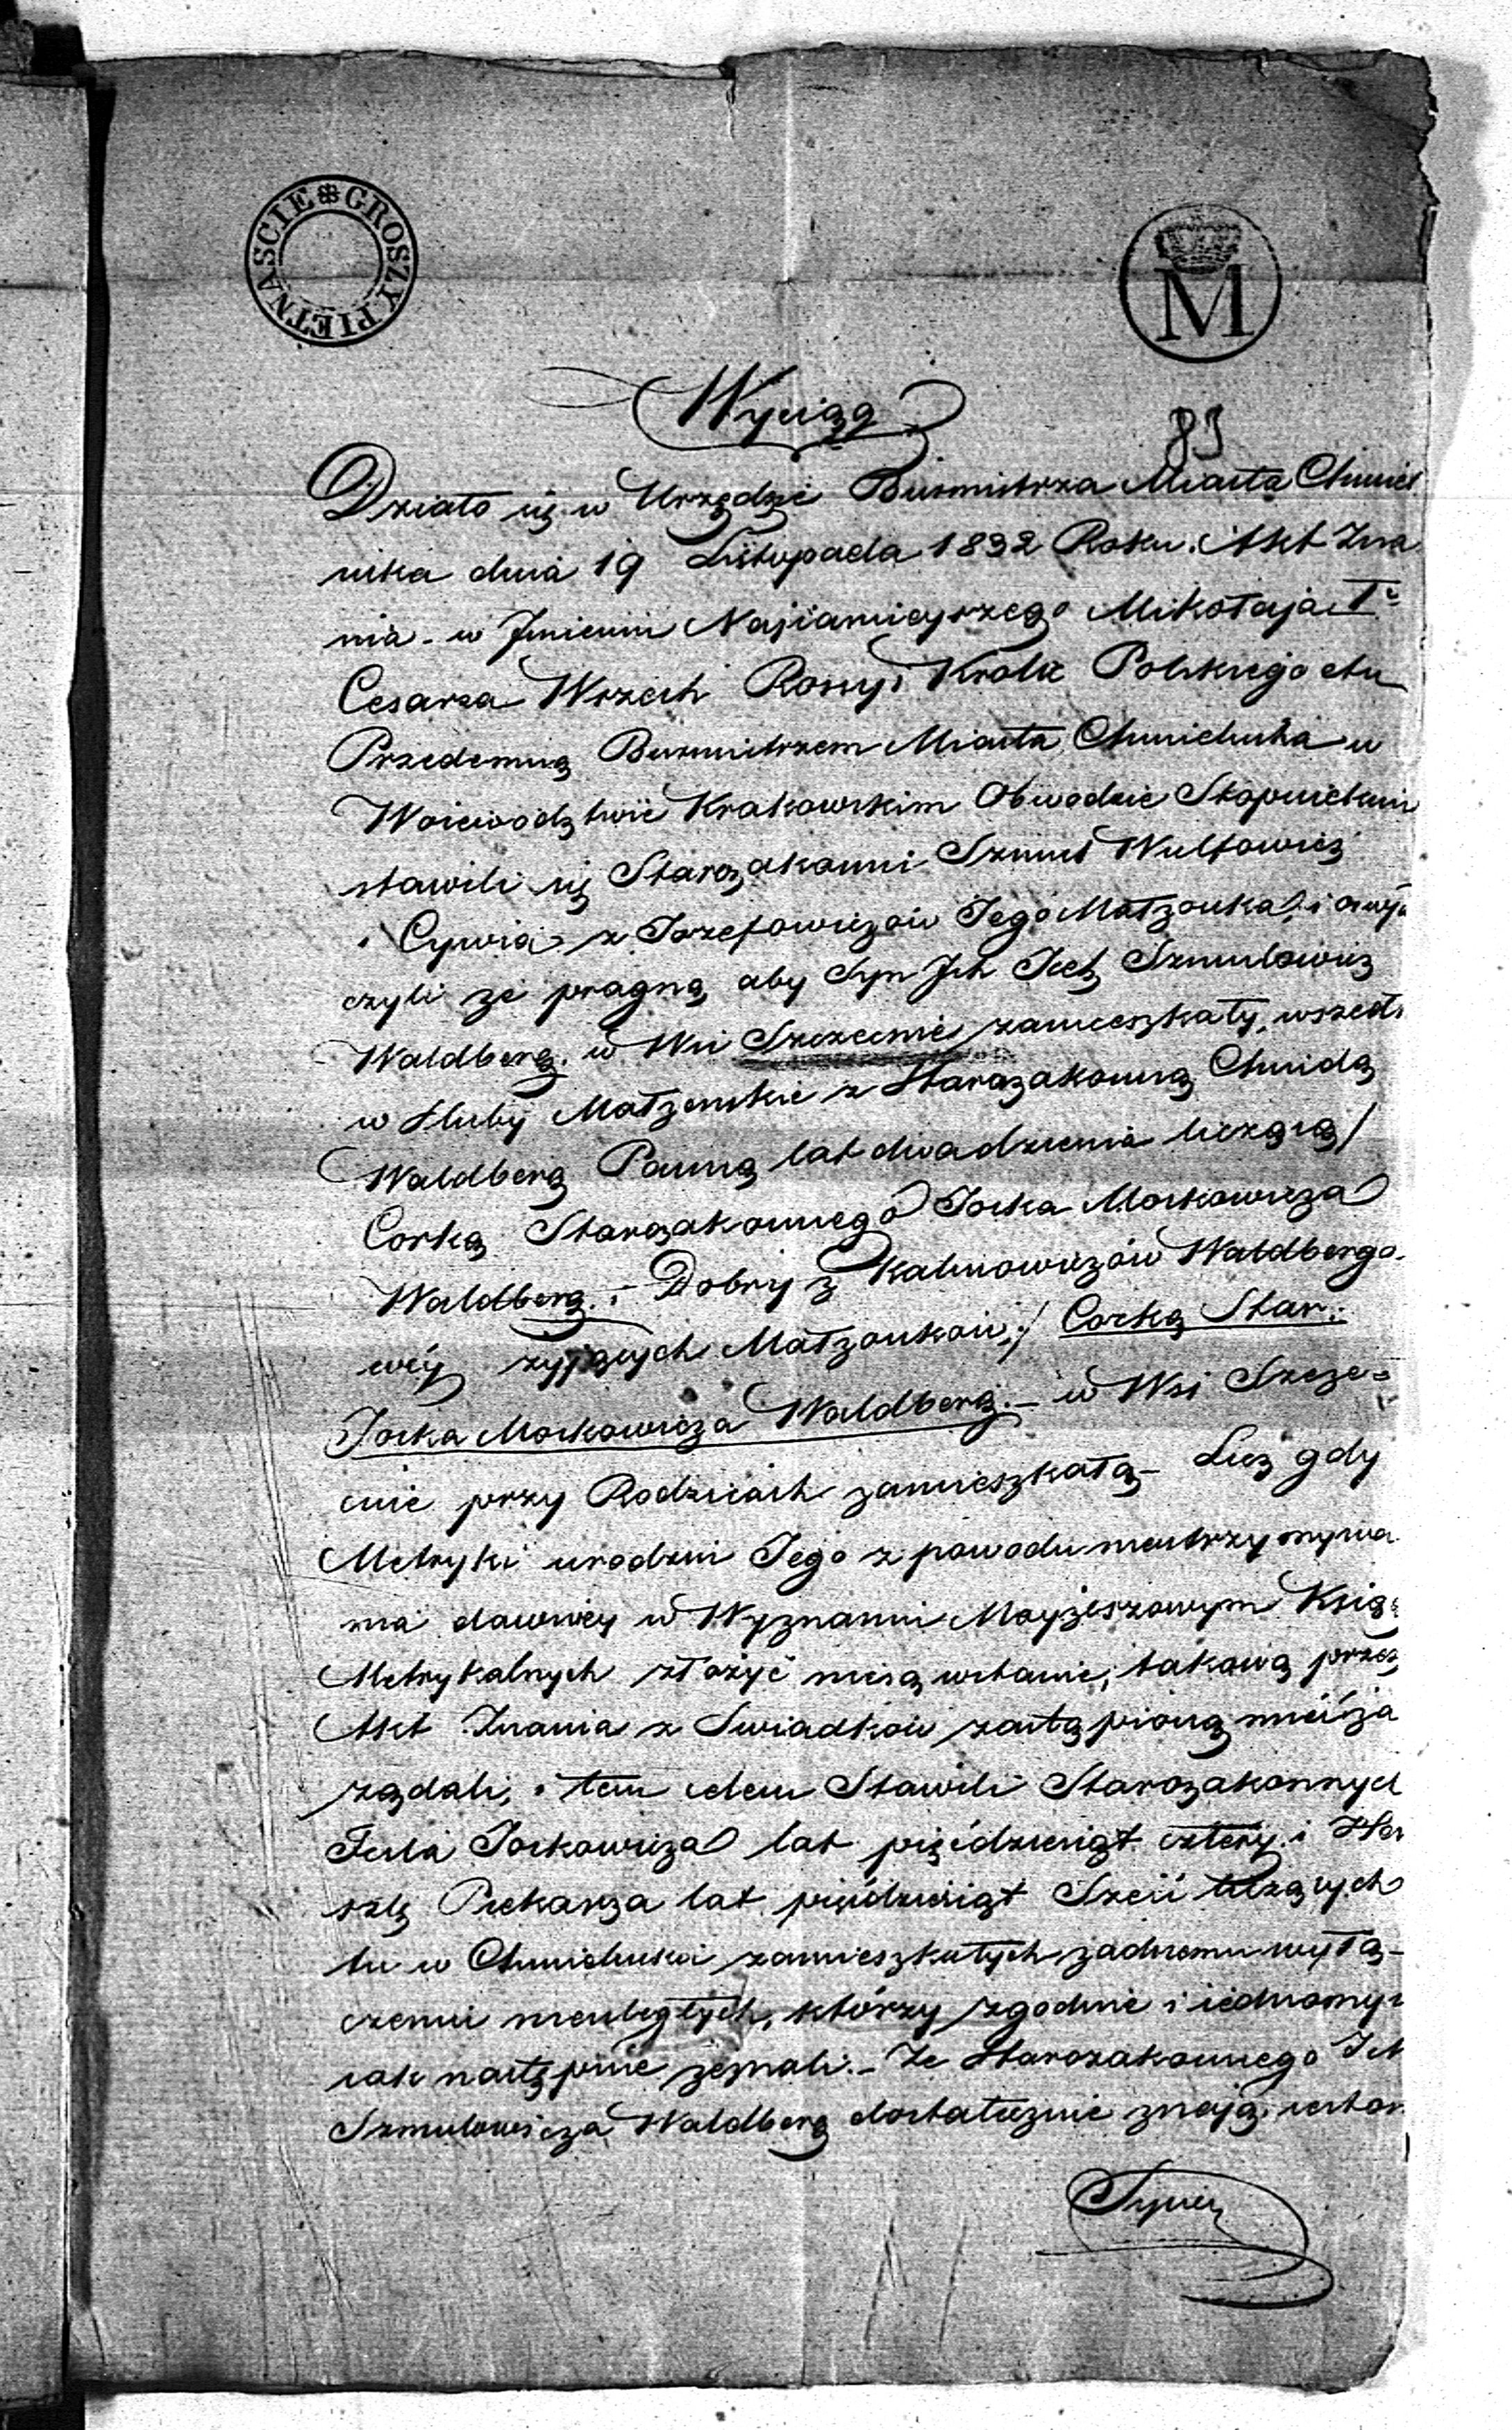 GROSZY PIETNASCIE
M
Wyciąg
83
Działo się w Urzędzie Burmistrza Miasta Chmiel
nika dnia 19 Listopada 1832 Roku. Akt Zna
nia - w Jmieniu Najjasnieyszego Mikołaja I°
Cesarza Wszech Rossyi Króla Polskiego etc
Przedemną Burmistrzem Miasta Chmielnika w
Woiewództwie Krakowskim Obwodzie Stopnickim
stawili się Starozakonni Szmul Wulfowicz
i Cywia z Jozefowiczów Jego Małżonka, i oswyia
czyli że pragną aby Syn Jch Icek Szmulowicz
Waldberg. w Wsi Szczecnie zamieszkały, wszedł
w Sluby Małżenskie z Starozakonną Chaidą
Waldberg Panną lat dwadziescia liczącą /
Corką Starozakonnego Joska Moskowicza
Waldberg. i Dobry z Kalmowiczów Waldbergo-
wéy żyjących Małżonków;/ Corką Star:
Joska Moskowicza Waldberg. - w Wsi Szcze=
cnie przy Rodzicach zamieszkałą - Lecz gdy
Metryki urodzin Jego z powodu nieutrzymywa
nia dawniey w Wyznaniu Moyżeszowym Ksiąg
Metrykalnych złożyć niesą wstanie, takową przez
Akt Znania z Swiadków zastąpioną mieć
żądali, i tem celem Stawili Starozakonnych
Joskowicza lat pięćdziesiąt cztery i Her
szlę Piekarza lat pięćdziesiąt Szesć liczących
tu w Chmielniku zamieszkałych żadnemu wyłą-
czeniu nieuległych, którzy zgodnie i iednomyś
iak następuie zeznali. - Że Starozakonnego Ick
Szmulowicza Waldberg dostatecznie znają,